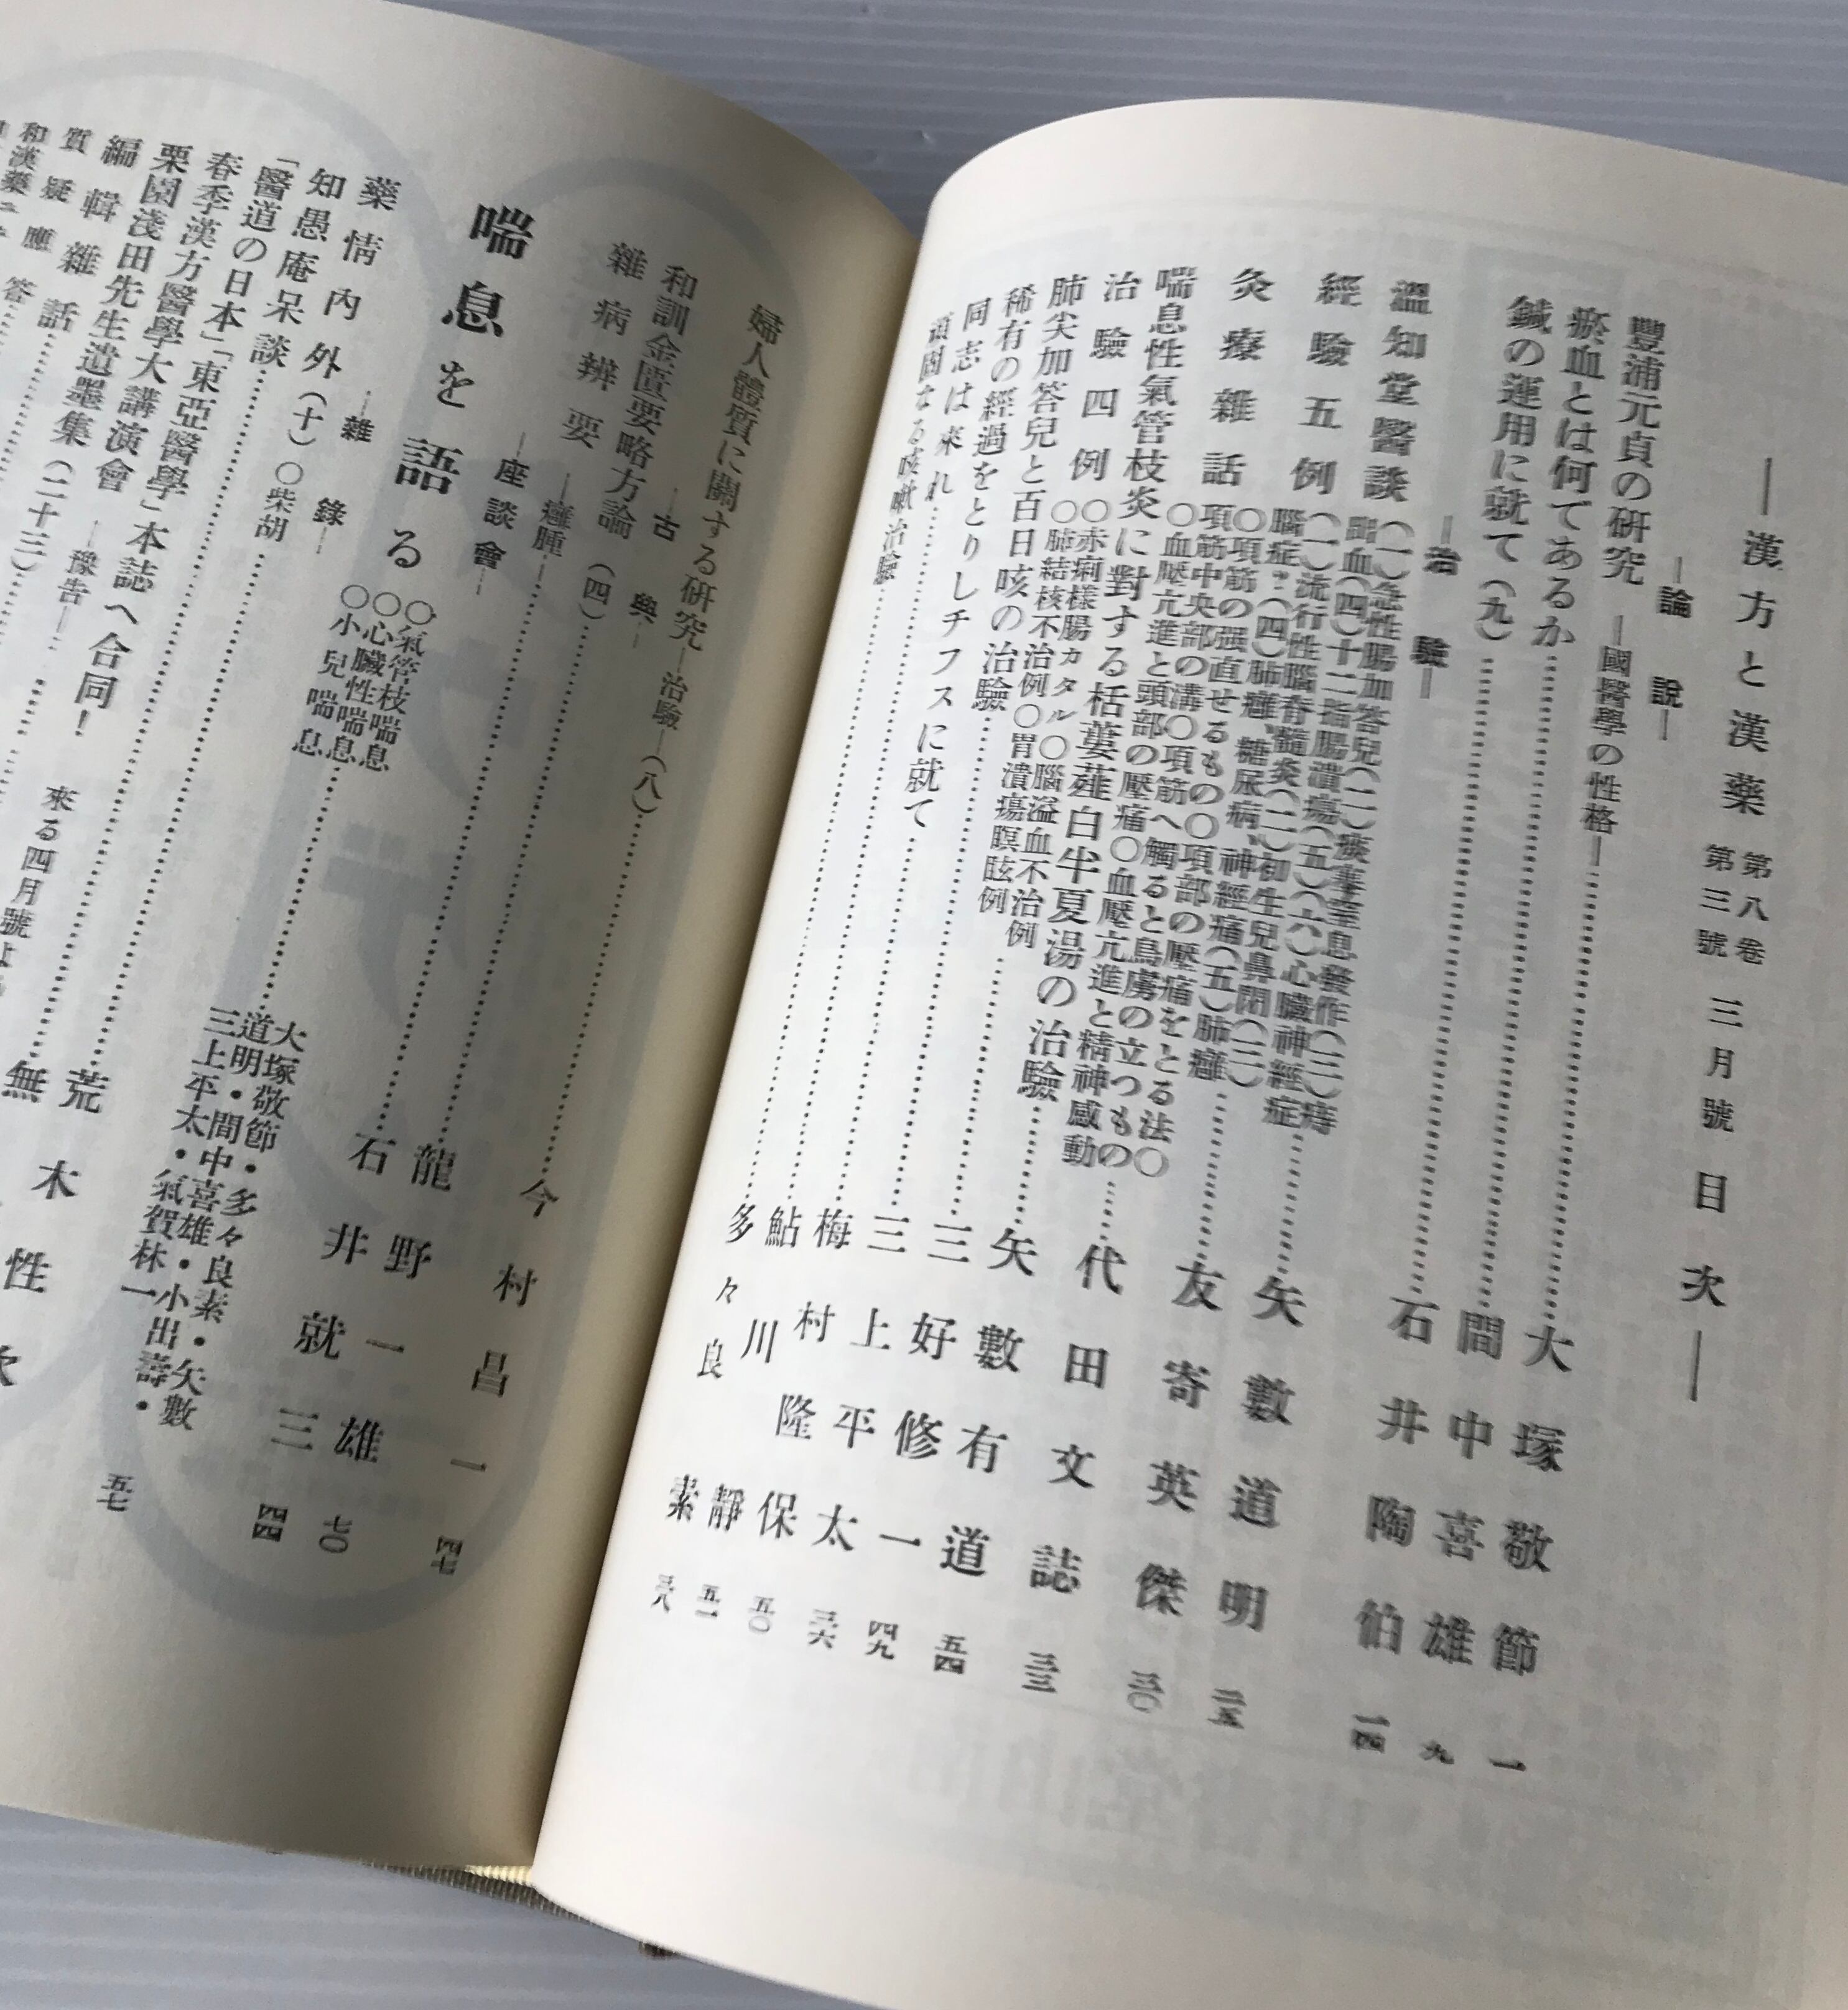 ―漢方と漢藥 第八卷 第三號 三月號 目次―
―論說―
豐浦元貞の研究―國醫學の性格― 大塚敬節 一
瘀血とは何であるか 間中喜雄 九
鍼の運用に就て(九) 石井陶伯 一四
―治驗―
溫知堂醫談 (一)急性腸加答兒(二)痰壅窒息發作(三)痔出血(四)十二指腸潰瘍(五)(六)心臟神經症 矢數道明 二五
經驗五例 (一)流行性腦脊髓炎(二)初生兒鼻閉(三)腦症?(四)肺癰、糖尿病、神經痛(五)肺癰 友寄英傑 三〇
灸療雜話 〇項筋の强直せるもの〇項部の壓痛をとる法〇項筋中央部の溝〇項筋へ觸ると鳥膚の立つもの〇血壓亢進と頭部の壓痛〇血壓亢進と精神感動 代田文誌 三三
喘息性氣管枝炎に對する栝蔞薤白半夏湯の治驗 矢數有道 五四
治驗四例 〇赤痢樣腸カタル〇腦溢血不治例〇肺結核不治例〇胃潰瘍瞑眩例 三好修一 四九
肺尖加答兒と百日咳の治驗 三上平太 三六
稀有の經過をとりしチフスに就て 梅村隆保 五〇
同志は來れ 鮎川靜 五一
頑固なる咳嗽治驗 多々良素 三八
婦人體質に關する研究―治驗―(八) 今村昌一 四七
―古典―
和訓金匱要略方論(四) 龍野一雄 七〇
雜病辨要―癰腫― 石井就三 四四
―座談會―
喘息を語る 〇氣管枝喘息〇心臟性喘息〇小兒喘息 大塚敬節・多々良素・矢數道明・間中喜雄・小出壽・三上平太・氣賀林一 五七
―雜錄―
藥情內外(十)〇柴胡
知愚庵呆談 荒木性次
「醫道の日本」「東亞醫學」本誌へ合同! 來る四月號より
春季漢方醫學大講演會―豫告―
栗園淺田先生遺墨集(二十三)
編輯雜話
質疑應答
和漢藥